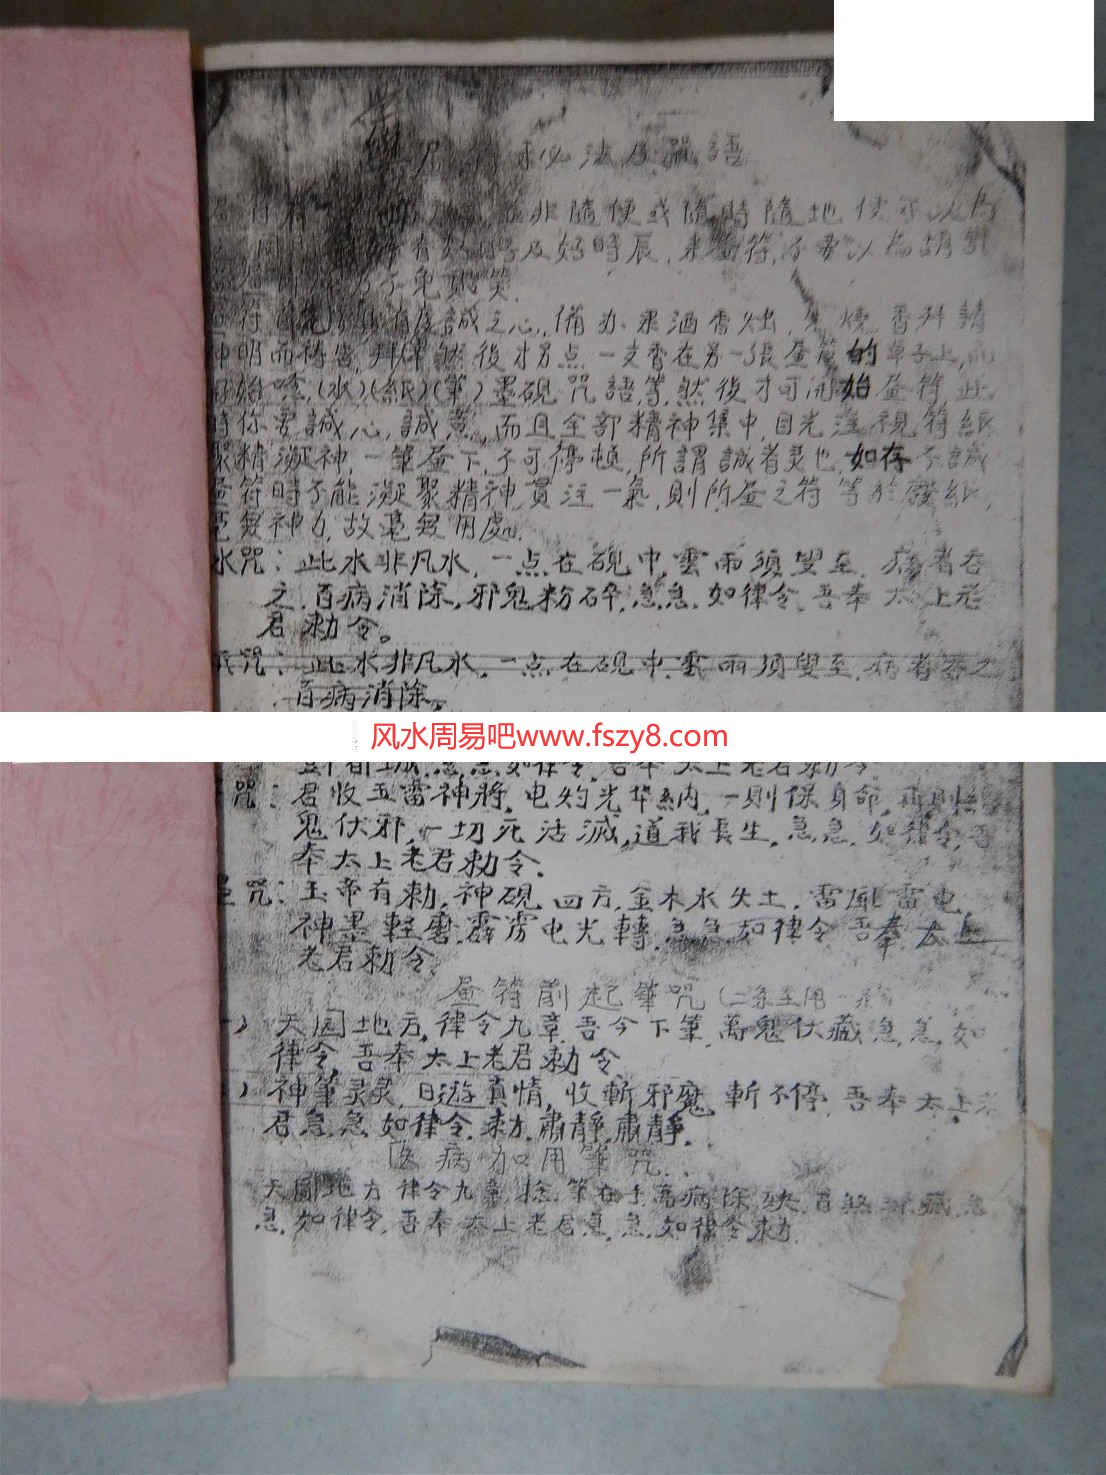 秘法及咒語
非隨便或隨時隨地使示以為
有好 及好時辰,來畫符,不要以為胡亂
免貽笑.
符 有虔誠之心,備办果酒香灶, 燒香拜請
神明而禱告,拜 然後才另点一支香在另一張畫 的草子上,而
開始唸,(水)(紙)(筆)墨硯咒語等,然後才可開始畫符,此
時你要誠心,誠意,而且全部精神集中,目光注視符紙
聚精凝神,一筆畫下,不可停頓,所謂誠者灵也,如存不誠
畫符時不能凝聚精神貫注一氣,則所畫之符等於廢紙,
毫無神力,故毫無用處。
水咒:此水非凡水,一点在硯中,雲雨須臾至,病者吞
之,百病消除,邪鬼粉碎,急急,如律令,吾奉太上老
君勅令。
紙咒:此水非凡水,一点在硯中,雲雨須臾至,病者吞之
百病消除,
风水周易吧www.fszy8.com
急急如律令,吾奉太上老君勅令
咒:君收五雷神將,电灼光华納,一則保身命,再則
鬼伏邪,一切死活滅,道我長生,急急,如律令,吾
奉太上老君勅令.
墨咒:玉帝有勅,神硯四方,金木水火土,雷風雷电
神墨輕磨,霹雳电光轉,急急如律令吾奉太上
老君勅令
畫符前起筆咒(二条 用一
一)天圓地方,律令九章,吾今下筆,萬鬼伏藏,急急,如
律令,吾奉太上老君勅令
)神筆灵灵,日遊真情,收斬邪魔,斬不停,吾奉太上老
君,急急,如律令,勅,肅靜,肅靜.
医病加用筆咒
天圓地方律令九章,捻筆在手,萬病除殃,百煞 藏,急
急,如律令,吾奉太上老君,急急,如律令,勅.